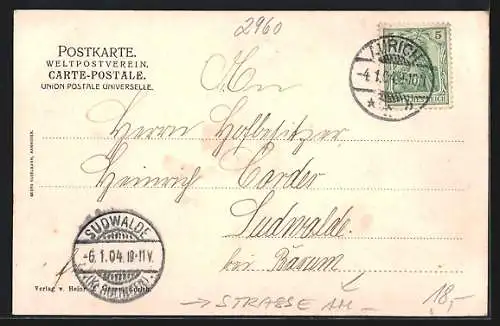 2960
POSTKARTE.
WELTPOSTVEREIN.
CARTE-POSTALE.
UNION POSTALE UNIVERSELLE.
5
AURICH
-4.1.04.9-10V.
An
Herrn Hofbesitzer
Heinrich Cordes
Sudwalde.
bei Bassum
SUDWALDE
-6.1.04.10-11V.
(HANNOVER)
Verlag v. Heinr.
→ STRASSE AM –
18,-